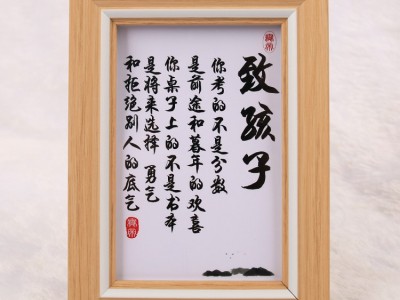 致孩子
你考的不是分数
是前途和暮年的欢喜
你桌子上的不是书本
是将来选择 勇气
和拒绝别人的底气